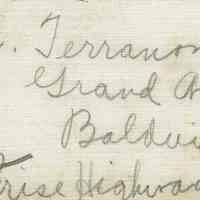 . Terranon
Grand A
Baldwi
rise Highwa